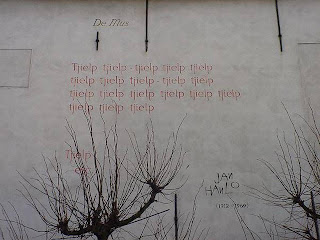 De Mus
Tjielp tjielp - tjielp tjielp tjielp
tjielp tjielp tjielp - tjielp tjielp
tjielp tjielp tjielp tjielp tjielp tjielp
tjielp tjielp tjielp
Tjielp
etc.
JAN
HANLO
(1912-1969)